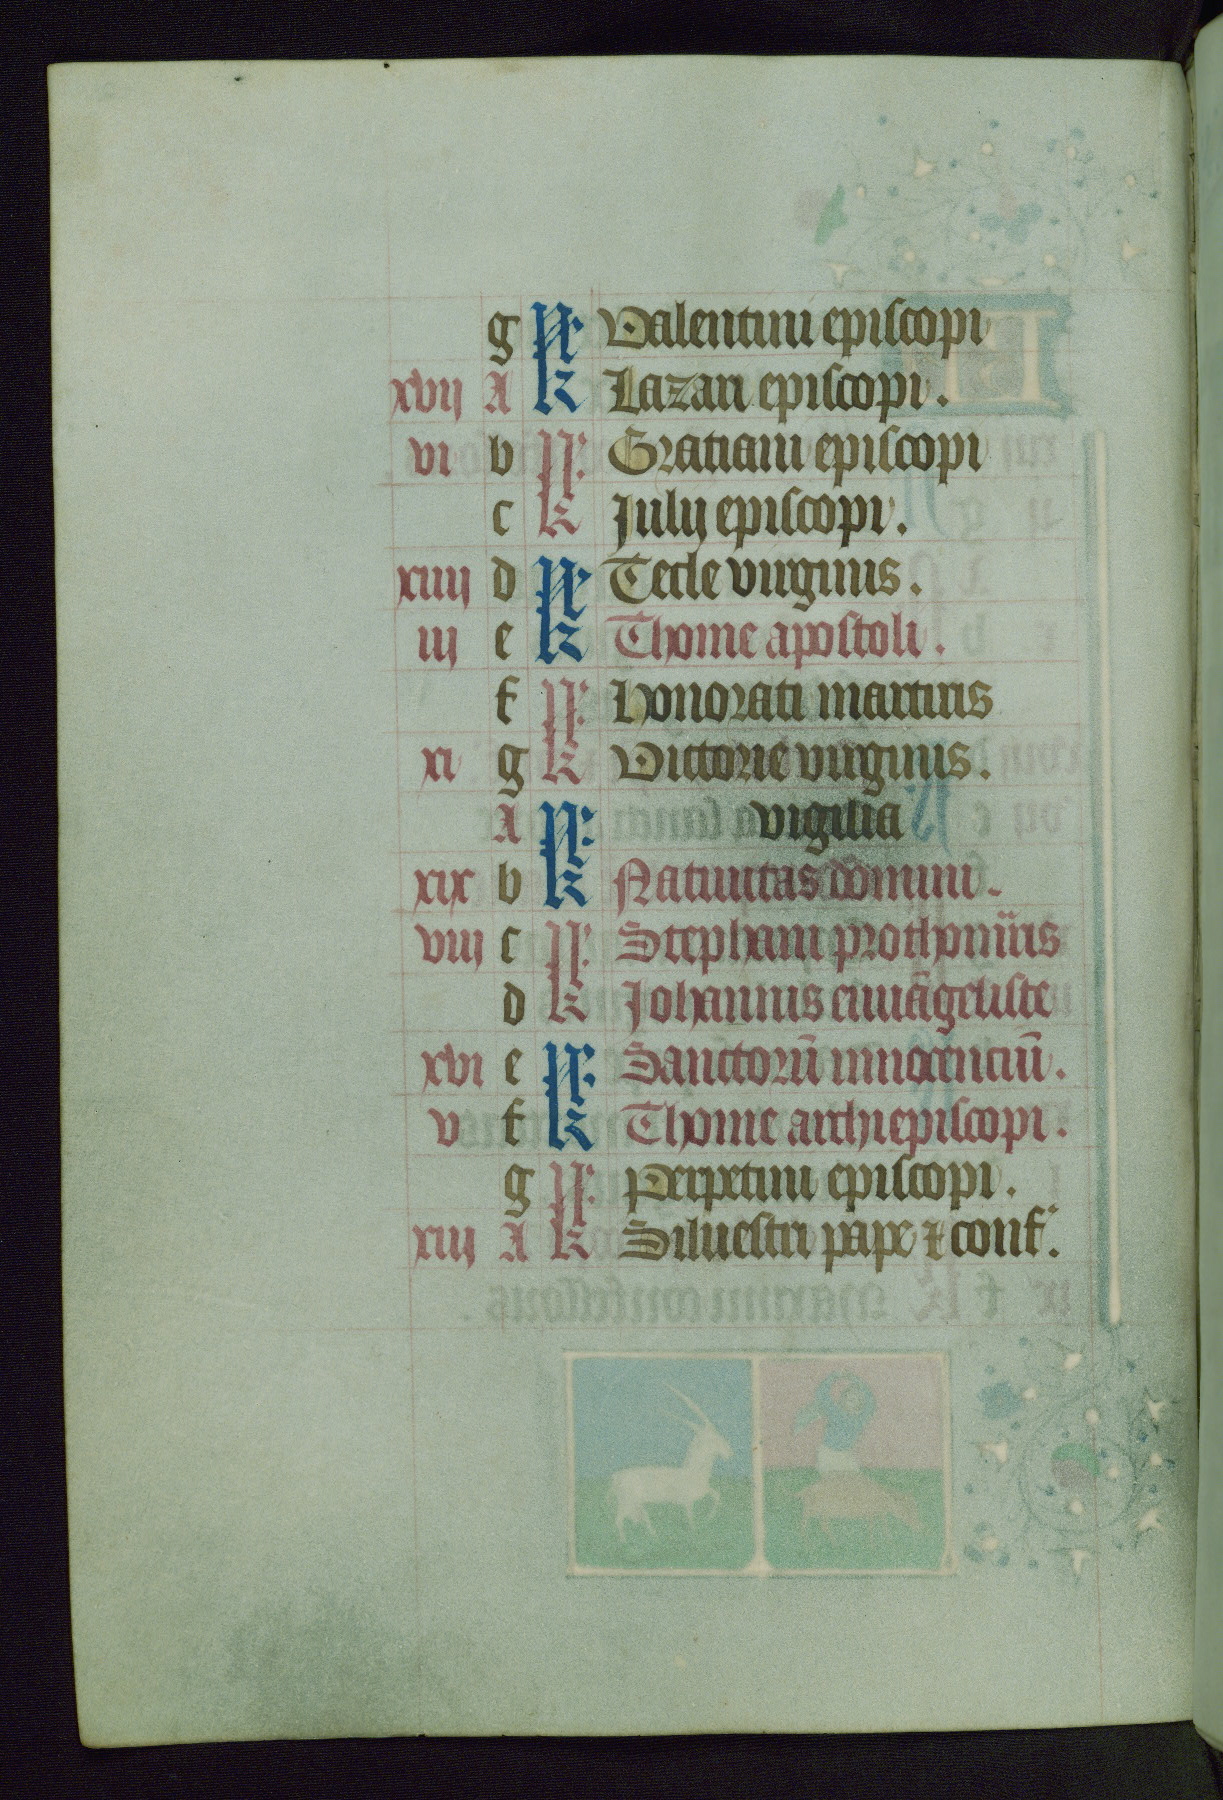 g kł Valentini episcopi
xvij A kł Lazari episcopi.
vi b kł Gratiani episcopi
c kł Julij episcopi.
xiiij d kł Tecle virginis.
iij e kł Thome apostoli.
f kł Honorati martiris
xi g kł Victorie virginis.
A kł vigilia
xix b kł Natiuitas dōmini.
viij c kł Stephani prothom̄ris
d kł Johannis euuāgeliste
xvi e kł Sanctorū innocenciū.
v f kł Thome archiepiscopi.
g kł Perpetini episcopi.
xiij A kł Siluestri pape ⁊ conf.